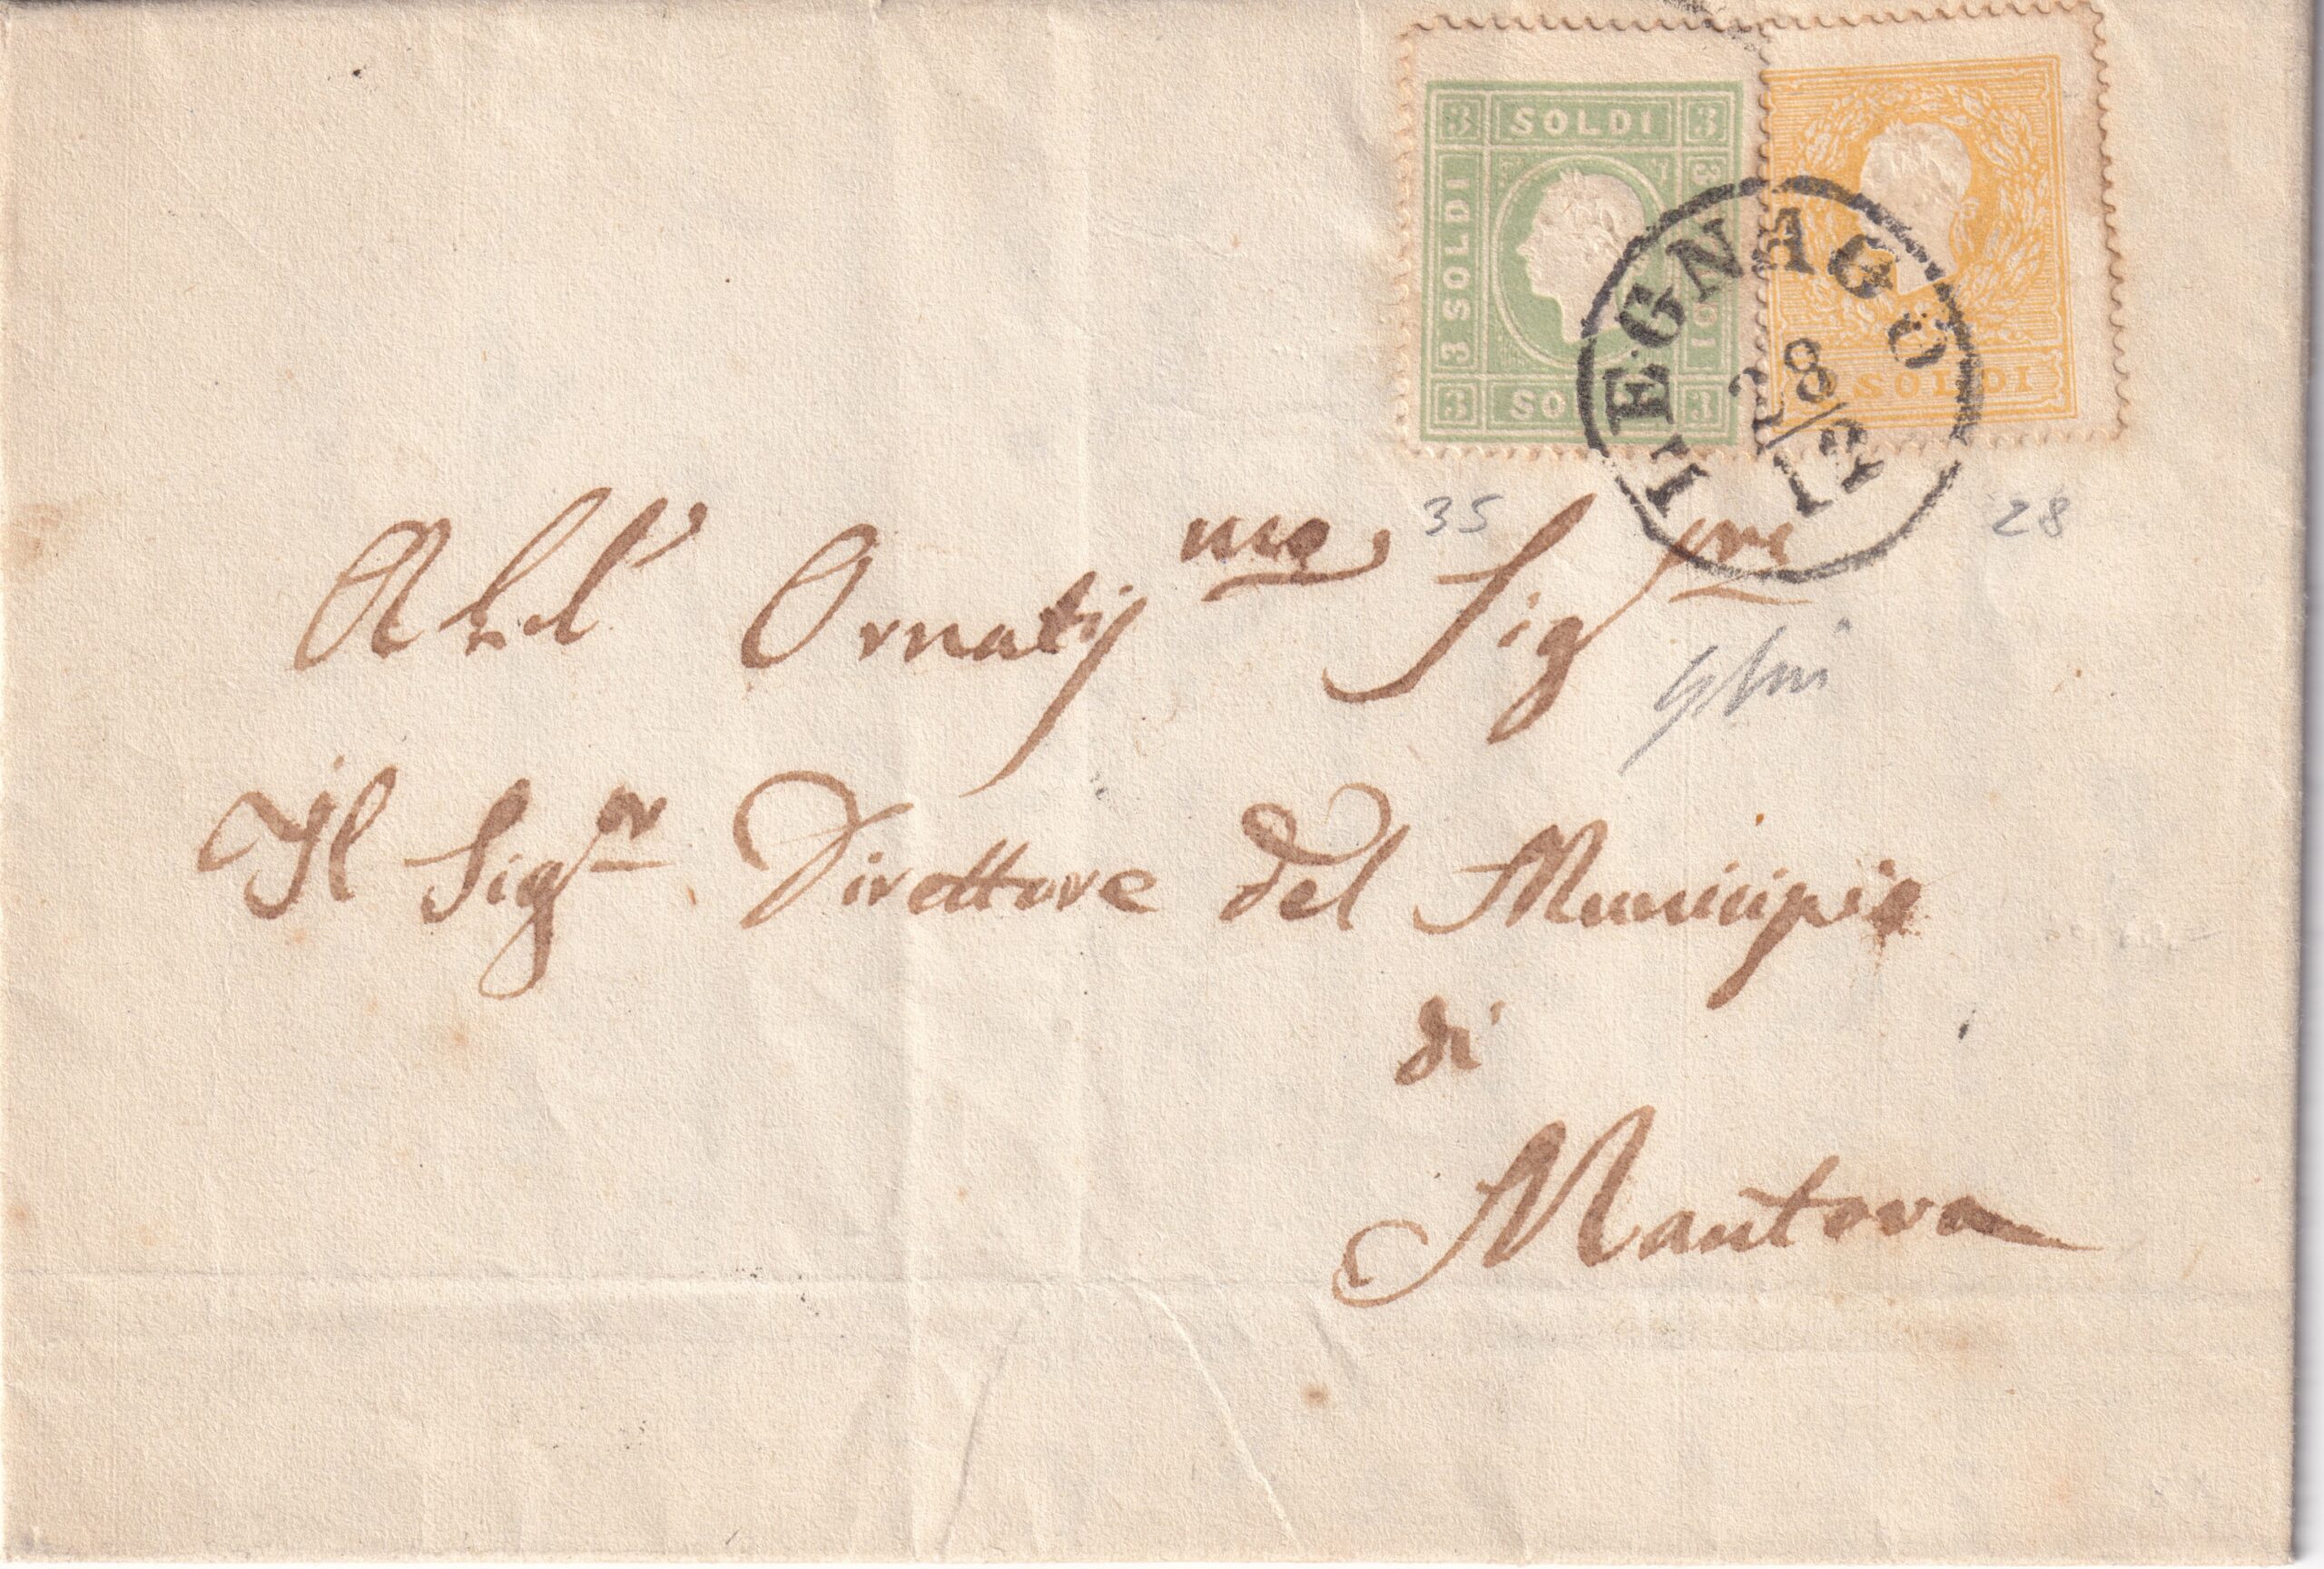 3 SOLDI 3
3 SOLDI
3 SO 3
SOLDI
LEGNAGO
28/12
35
28
All' Ornatissmo Sigre
Il Sigor Direttore del Municipio
di
Mantova